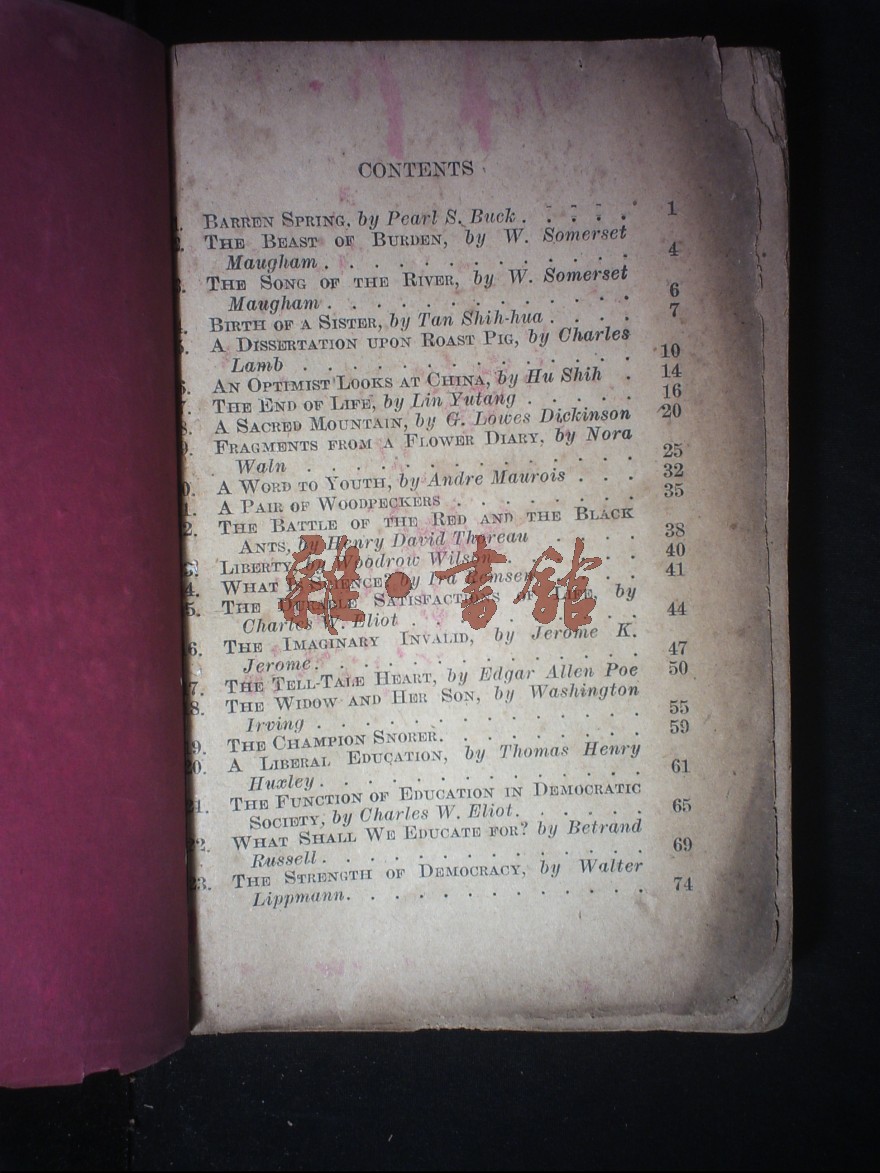 CONTENTS
1. BARREN SPRING, by Pearl S. Buck . . . . . 1
2. THE BEAST OF BURDEN, by W. Somerset
Maugham . . . . . . . . . . . . . 4
3. THE SONG OF THE RIVER, by W. Somerset
Maugham . . . . . . . . . . . . . 6
4. BIRTH OF A SISTER, by Tan Shih-hua . . . . 7
5. A DISSERTATION UPON ROAST PIG, by Charles
Lamb . . . . . . . . . . . . . . 10
6. AN OPTIMIST LOOKS AT CHINA, by Hu Shih . 14
7. THE END OF LIFE, by Lin Yutang . . . . . 16
8. A SACRED MOUNTAIN, by G. Lowes Dickinson 20
9. FRAGMENTS FROM A FLOWER DIARY, by Nora
Waln . . . . . . . . . . . . . . 25
0. A WORD TO YOUTH, by Andre Maurois . . . 32
1. A PAIR OF WOODPECKERS . . . . . . . . 35
2. THE BATTLE OF THE RED AND THE BLACK
ANTS, by Henry David Thoreau . . . . 38
3. LIBERTY, by Woodrow Wilson . . . . . . 40
4. WHAT IS SCIENCE? by Ira Remsen . . . . 41
5. THE DURABLE SATISFACTIONS OF LIFE, by
Charles W. Eliot . . . . . . . . . . 44
6. THE IMAGINARY INVALID, by Jerome K.
Jerome . . . . . . . . . . . . . 47
7. THE TELL-TALE HEART, by Edgar Allen Poe 50
18. THE WIDOW AND HER SON, by Washington
Irving . . . . . . . . . . . . . 55
19. THE CHAMPION SNORER . . . . . . . . 59
20. A LIBERAL EDUCATION, by Thomas Henry
Huxley . . . . . . . . . . . . . 61
21. THE FUNCTION OF EDUCATION IN DEMOCRATIC
SOCIETY, by Charles W. Eliot . . . . . . 65
22. WHAT SHALL WE EDUCATE FOR? by Betrand
Russell . . . . . . . . . . . . . 69
23. THE STRENGTH OF DEMOCRACY, by Walter
Lippmann . . . . . . . . . . . . 74
雜·書館